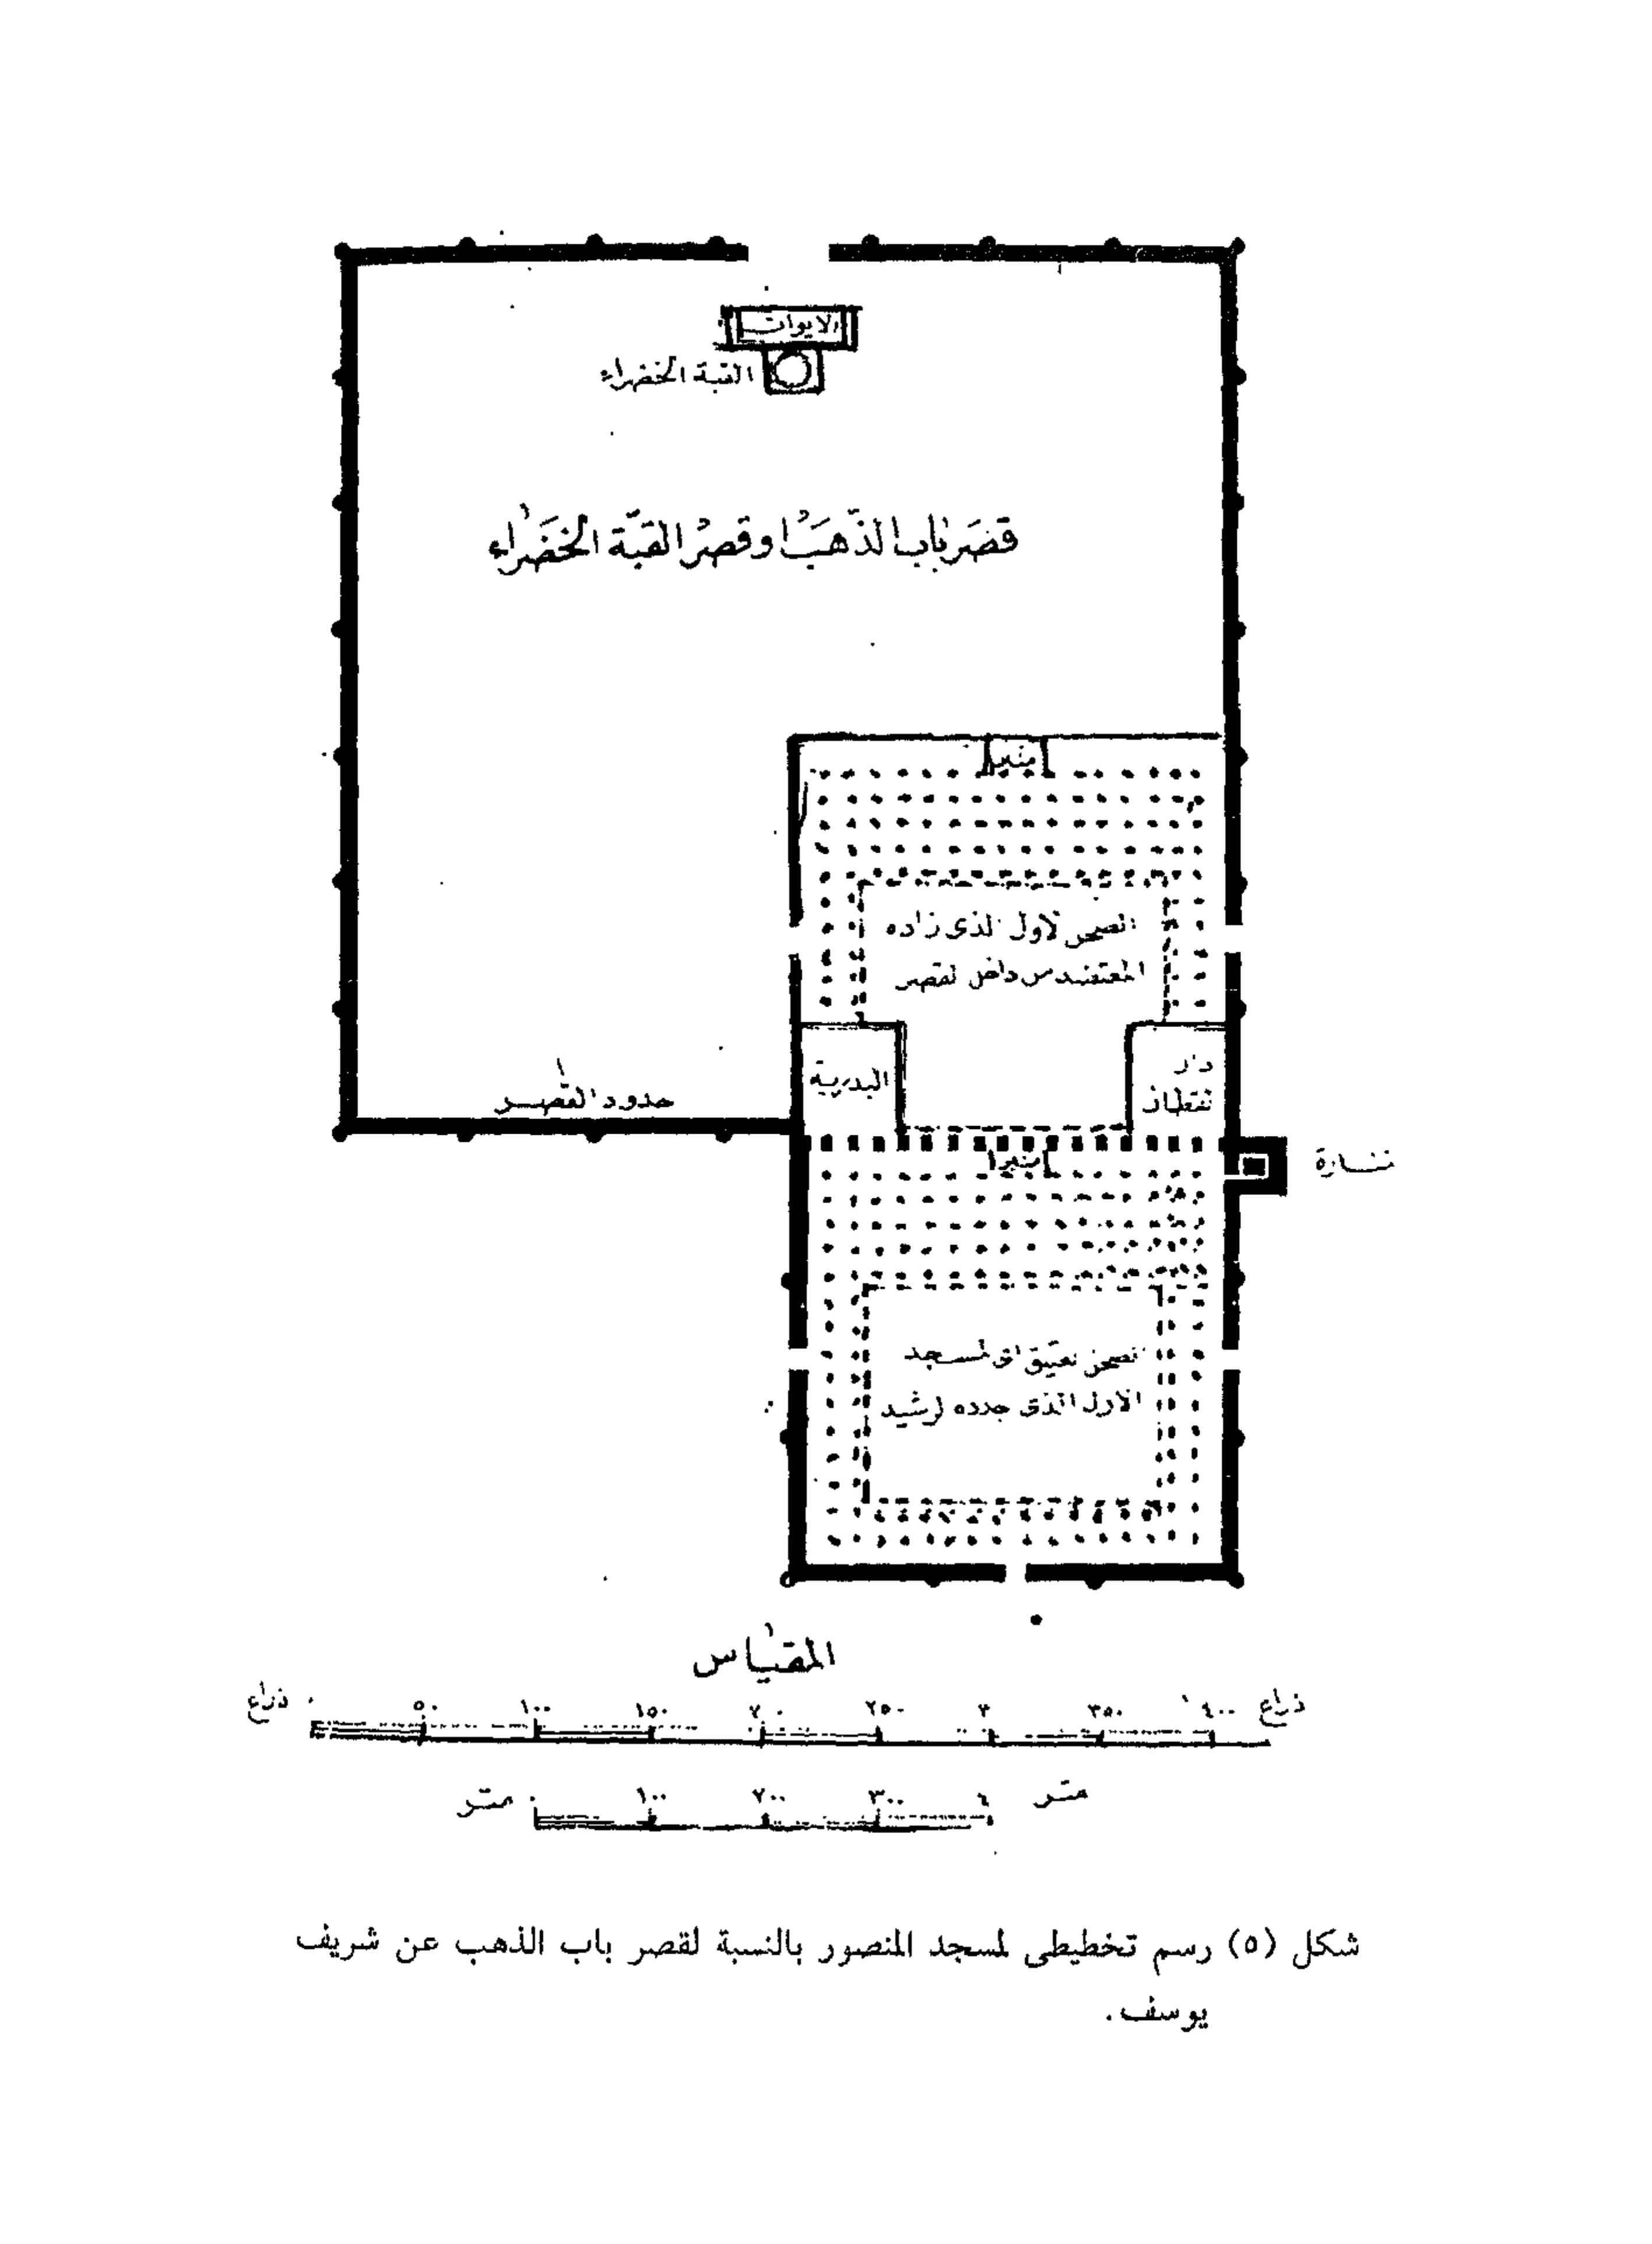 الايوان
القبة الخضراء
قصر باب الذهب وقصر القبة الخضراء
منبر
الصحن لاول الذى زاده
المعتضد من داخل لقصر
البدرية
دار
لقطان
حدود القصر
منبر
منارة
الصحن لعتيق اى لمسجد
الاول الذى جدده لرشيد
المقياس
ذراع ٠ ٥٠ ١٠٠ ١٥٠ ٢٠٠ ٢٥٠ ٣ ٣٥٠ ٤٠٠ ذراع
متر ٠ ١٠٠ ٢٠٠ ٣٠٠ ٤ متر
شكل (٥) رسم تخطيطى لمسجد المنصور بالنسبة لقصر باب الذهب عن شريف
يوسف .